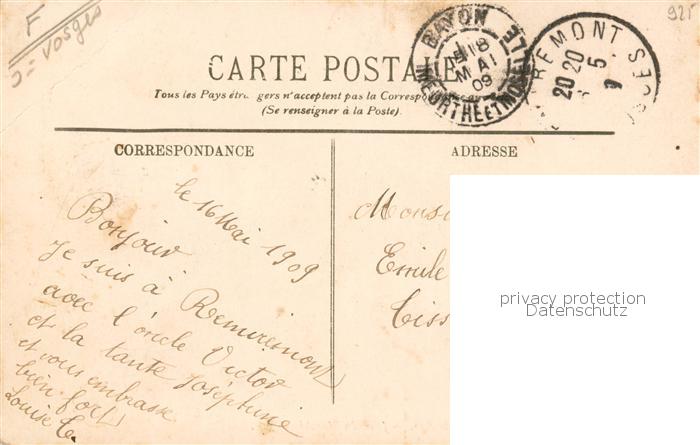 F
Vosges
925
CARTE POSTALE
Tous les Pays étrangers n'acceptent pas la Correspon
(Se renseigner à la Poste).
BAYON
18
MAI
09
MEURTHE ET MOSELLE
REMIREMONT VOSGES
20 20
5
CORRESPONDANCE
ADRESSE
le 16 Mai 1909
Bonjour
Je suis à Remiremont
avec l'oncle Victor
et la tante Joséphine
et vous embrasse
bien fort
Louise
Monsi
Emile
privacy protection
Datenschutz